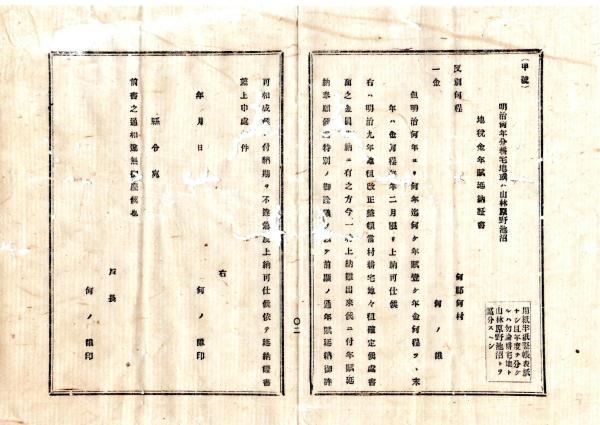 (甲號)
明治何年分耕宅地或ハ山林原野池沼
地税金年賦延納証書
用紙半紙竪帳表紙
ナシ且年度ヲ分ケ
ルハ勿論耕宅地ト
山林原野池沼トヲ
區分スヘシ
何郡何村
何ノ誰
反別何程
一金
但明治何年ヨリ何年迄何ケ年賦壹ケ年金何程ヲ、末
年ハ金何程 年二月限リ上納可仕候
右ハ明治九年地租改正整頓當村耕宅地々租確定候處書
面之金員 納ニ有之方今一時上納難出來候ニ付年賦延
納奉願候 特別ノ御詮議ヲ以テ前顯ノ通年賦延納御許
可相成候ニ付納期ヲ不違急度上納可仕候依テ延納證書
差上申處如件
年 月 日
右
何ノ誰印
縣令宛
前書之通相違無御座候也
戸長
何ノ誰印
〇二